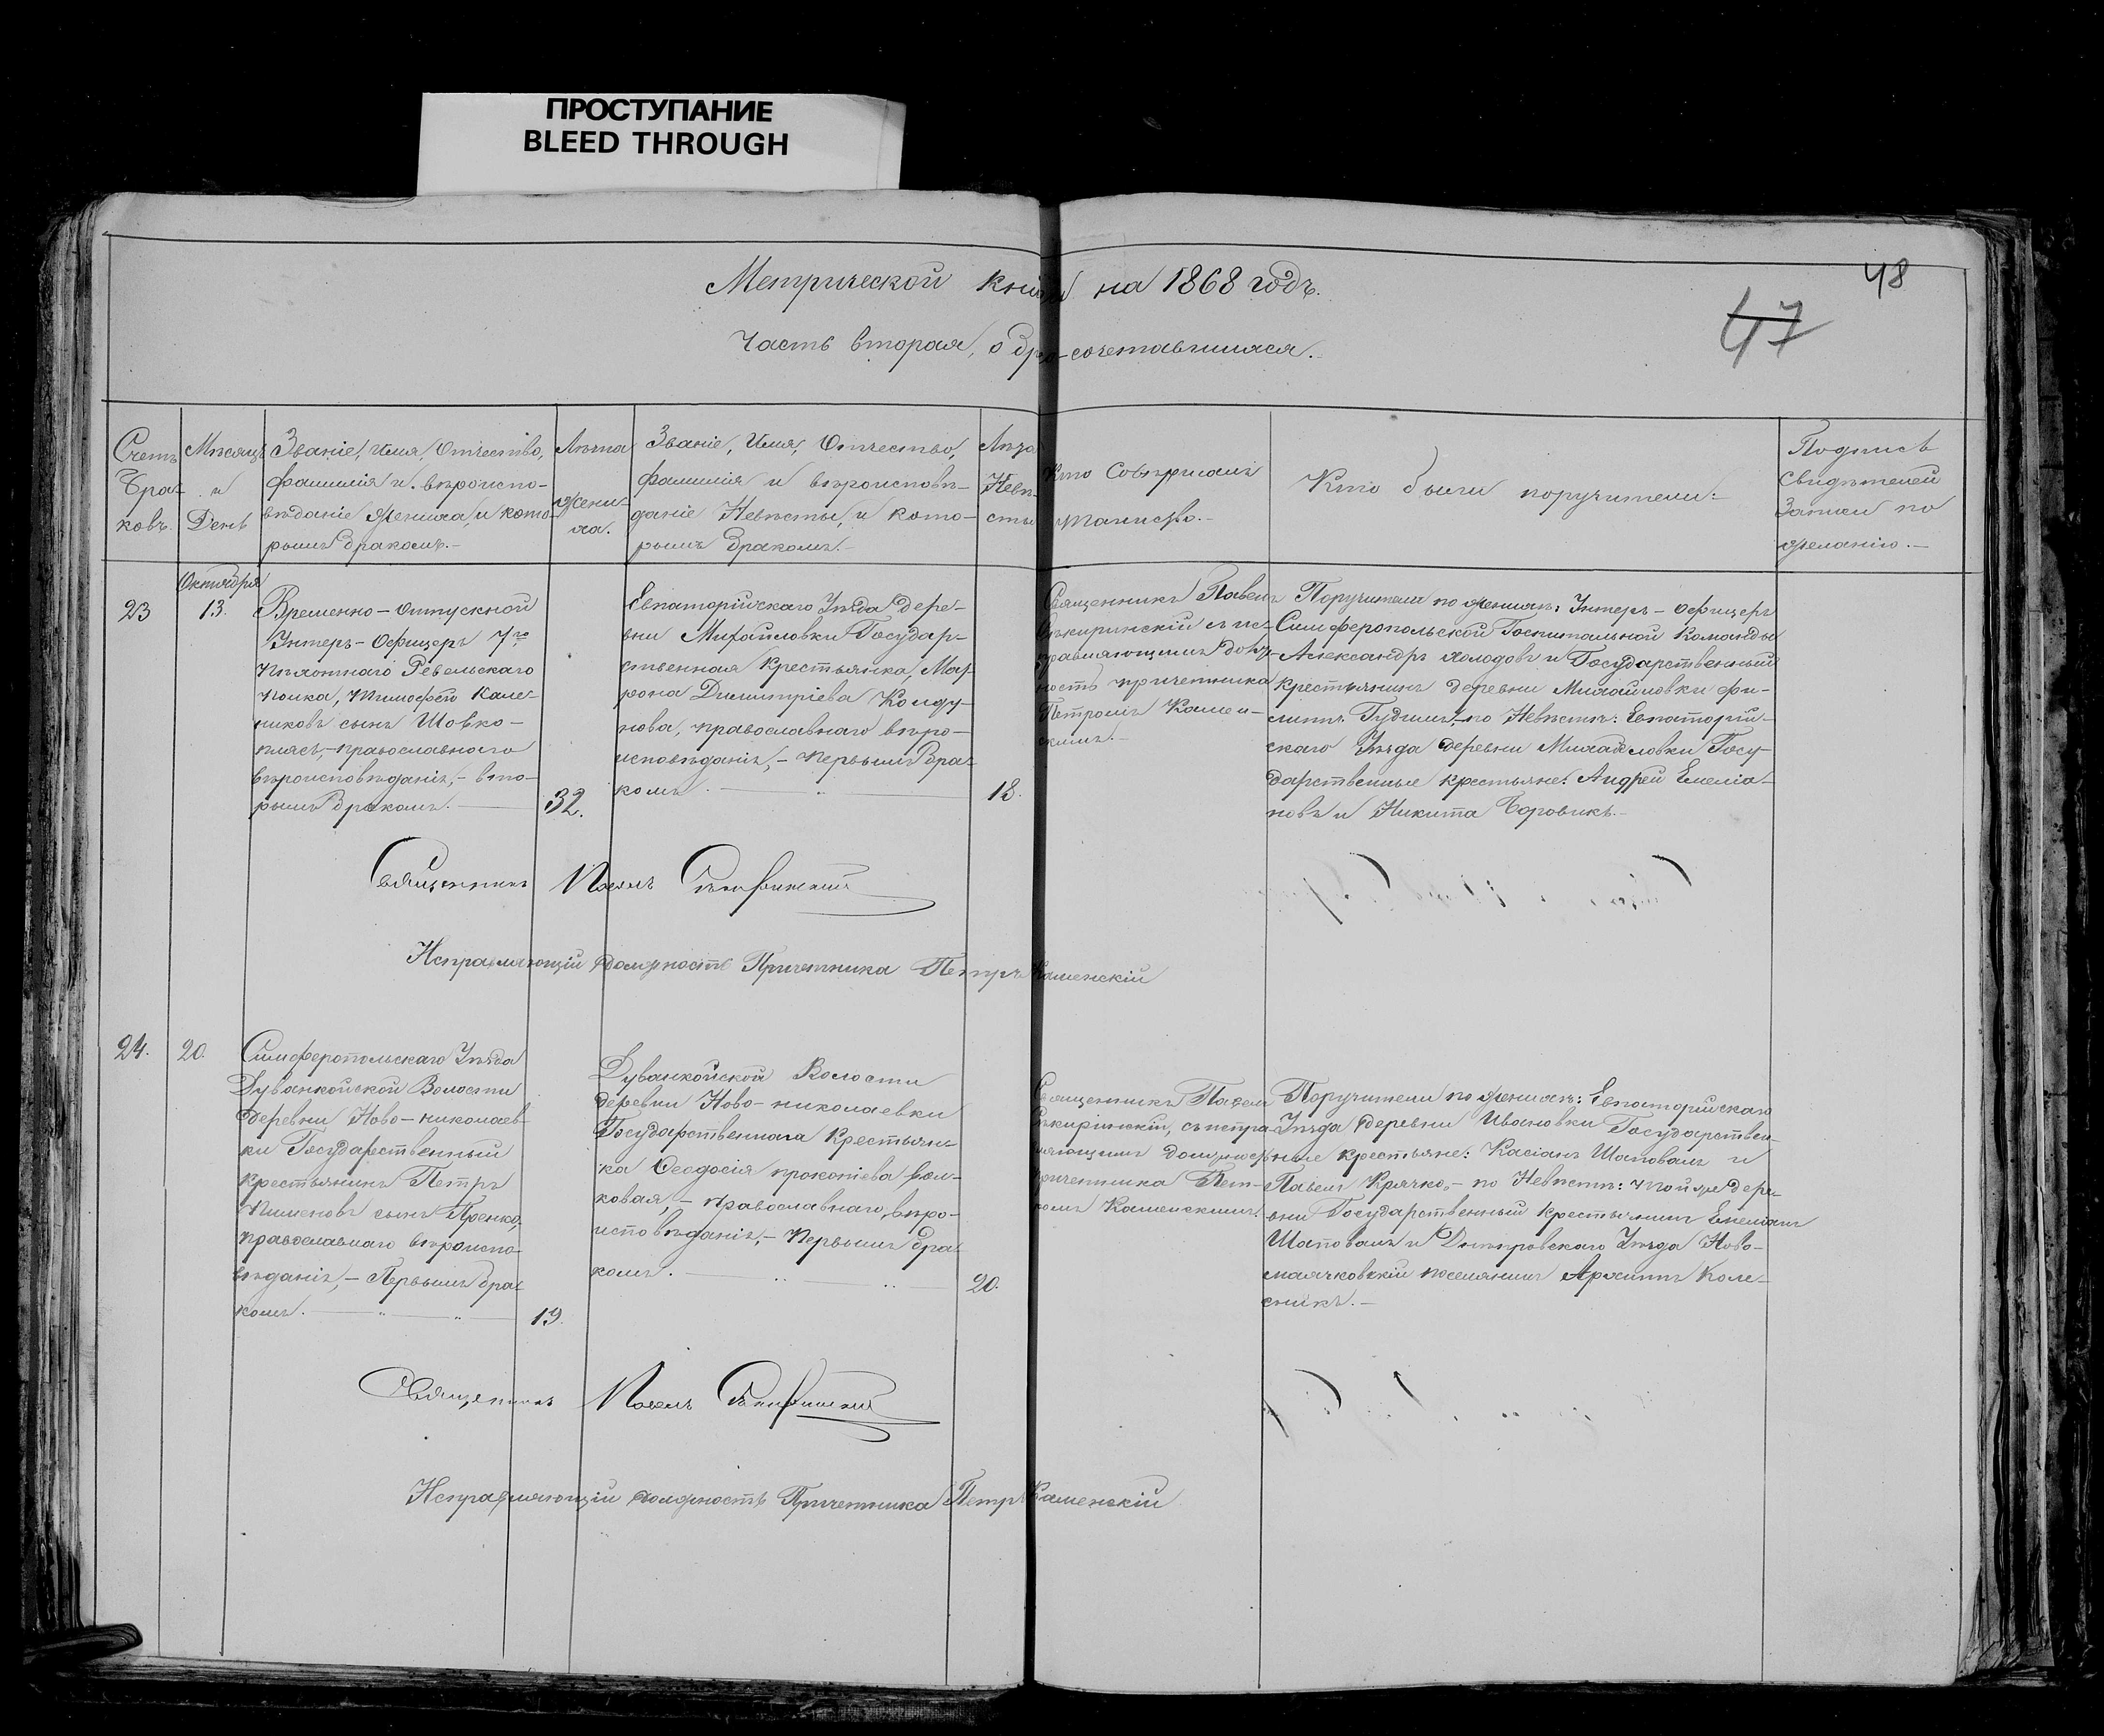 ПРОСТУПАНИЕ
BLEED THROUGH
48
47
Метрической книги на 1868 годъ.
Часть вторая, о бракосочетавшихся.
Счетъ
Бра-
ковъ.
Мѣсяцъ
и
День
Званіе, Имя, Отчество,
фамилія и вѣроиспо-
вѣданіе жениха, и кото-
рымъ бракомъ.-
Лѣта
жени-
ха.
Званіе, Имя, Отчество,
фамилія и вѣроисповѣ-
даніе Невѣсты, и кото-
рымъ бракомъ.-
Лѣта
Невѣ-
сты
Кто Совершалъ
таинство.-
Кто были поручители:
Подпись
Свидѣтелей
Записи по
желанію.-
23
Октября
13.
Временно-отпускной
Унтеръ-Офицеръ 7го
пѣхотнаго Ревельскаго
полка, Тимофей Кале-
никовъ сынъ Шовко-
плясъ,-православнаго
вѣроисповѣданія,- вто-
рымъ бракомъ.
32.
Евпаторійскаго Уѣзда дере-
вни Михайловки Государ-
ственная крестьянка, Мат-
рона Димитріева Колду-
нова, православнаго вѣро-
исповѣданія,- первымъ бра-
комъ.
18.
Священникъ Павелъ
Сѣкиринскій съ ис-
правляющимъ долж-
ность причетника
Петромъ Камен-
скимъ.-
Поручители по женихѣ: Унтеръ-офицеръ
Симферопольской Госпитальной Команды
Александръ Холодовъ и Государственный
крестьянинъ деревни Михайловки Фи-
липпъ Гудимъ,-по Невѣстѣ: Евпаторій-
скаго Уѣзда деревни Михайловки Госу-
дарственные крестьяне: Андрей Емелья-
новъ и Никита Боровикъ.-
Священникъ Павелъ Сѣкиринскій
Исправляющій должность Причетника Петръ Каменскій
24.
20.
Симферопольскаго Уѣзда
Дуванкойской Волости
деревни Ново-николаев-
ки Государственный
крестьянинъ Петръ
Пименовъ сынъ
православнаго вѣроиспо-
вѣданія,- Первымъ бра-
комъ.
19.
Дуванкойской Волости
деревни Ново-николаевки
Государственная Крестьян-
ка Ѳеодосія прокопіева
ковая,- православнаго вѣро-
исповѣданія,- Первымъ бра-
комъ.
20.
Священникъ Павелъ
Сѣкиринскій, съ испра-
вляющимъ должность
причетника Пет-
ромъ Каменскимъ.
Поручители по женихѣ: Евпаторійскаго
Уѣзда деревни Ивановки Государствен-
ные крестьяне: Касіанъ Шаповалъ и
Павелъ Крячко,- по Невѣстѣ: той же дере-
вни Государственный крестьянинъ Емельянъ
Шаповалъ и Днѣпровскаго Уѣзда Ново-
маячковскій поселянинъ Архипъ Коле-
сникъ.-
Священникъ Павелъ Сѣкиринскій
Исправляющій должность Причетника Петръ Каменскій